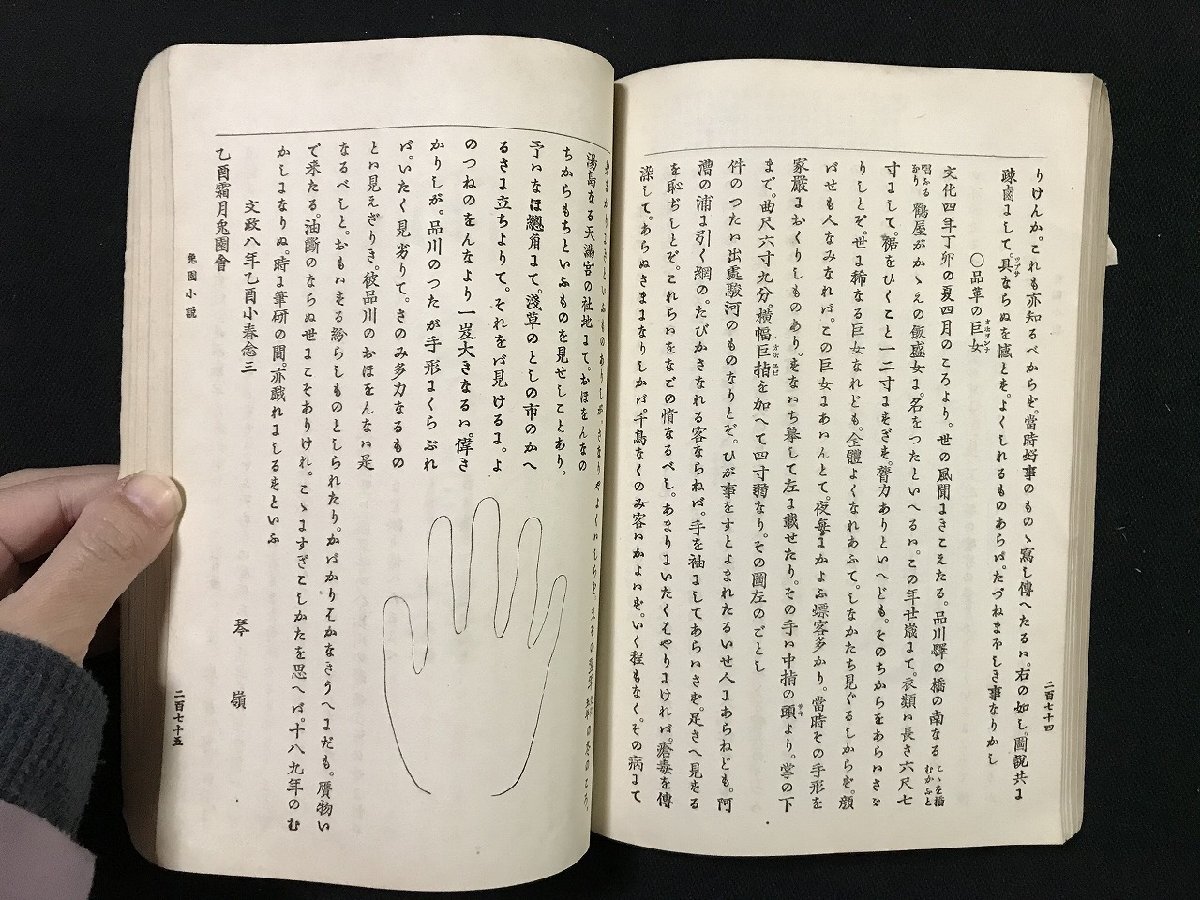 りけんか。これも亦知るべからず。當時好事のものゝ寫し傳へたるハ。右の如し。圖説共に
疎鹵にして。具ならぬを憾とす。よくしれるものあらバ。たづねまほしき事なりかし
〇品革の巨女
文化四年丁卯の夏四月のころより。世の風聞にきこえたる。品川驛の橋の南なる
鶴屋がかゝえの飯盛女に。名をつたといへるハ。この年廿歳にて。衣類ハ長き六尺七
寸にして。裾をひくこと一二寸にすぎず。膂力ありといへども。そのちからをあらハさゞ
りしとぞ。世に稀なる巨女なれども。全體よくなれあふて。しなかたち見ぐるしからず。顔
ばせも人なみなれバ。この巨女にあハんとて。夜毎にかよふ嫖客多かり。當時その手形を
家嚴におくりしものあり。すなハち摹して左に載せたり。その手ハ中指の頭より。掌の下
まで。曲尺六寸九分。横幅巨指を加へて四寸弱なり。その圖左のごとし
件のつたハ出處駿河のものなりとぞ。ひが事をすとよまれたるいせ人にあらねども。阿
漕の浦に引く網の。たびかさなれる客ならねバ。手を袖にしてあらハさず。足さへ見する
を恥ぢしとぞ。これらハをなごの情なるべし。あまりにいたくはやりにけれバ。瘡毒を傳
染して。あらぬさまなりしかバ。千鳥なくのみ客ハかよハず。いく程もなく。その病にて
二百七十四
湯島なる天滿宮の社地にて。おほをんなの
ちからもちといふものを見せしことあり。
予ハなほ總角にて。淺草のとしの市のかへ
るさに立ちよりて。それをバ見けるに。よ
のつねのをんなより一岌大きなるハ。偉き
かりしが。品川のつたが手形にくらぶれ
バ。いたく見劣りて。さのみ多力なるもの
とハ見えざりき。彼品川のおほをんなハ是
なるべしと。おもハする紛らしものとしられたり。かバかりはかなきうへにだも。贋物ハ
で來たる。油斷のならぬ世にこそありけれ。こゝにすぎこしかたを思へバ。十八九年のむ
かしになりぬ。時に筆研の間。亦戲れにしるすといふ
文政八年乙酉小春念三
琴嶺
乙酉霜月兎園會
兎園小説
二百七十五